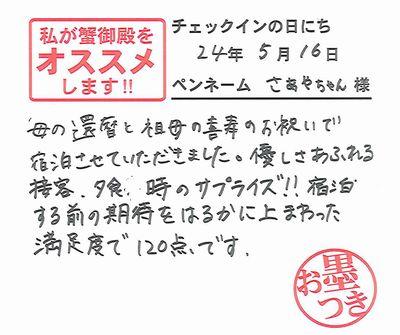 私が蟹御殿を
オススメ
します!!
チェックインの日にち
24年 5月 16日
ペンネーム さあやちゃん 様
母の還暦と祖母の喜寿のお祝いで
宿泊させていただきました。優しさあふれる
接客、夕食、時のサプライズ!!宿泊
する前の期待をはるかに上まわった
満足度で120点です。
お墨つき